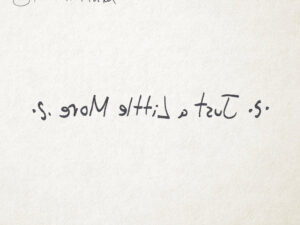 .s. Just a Little More .s.